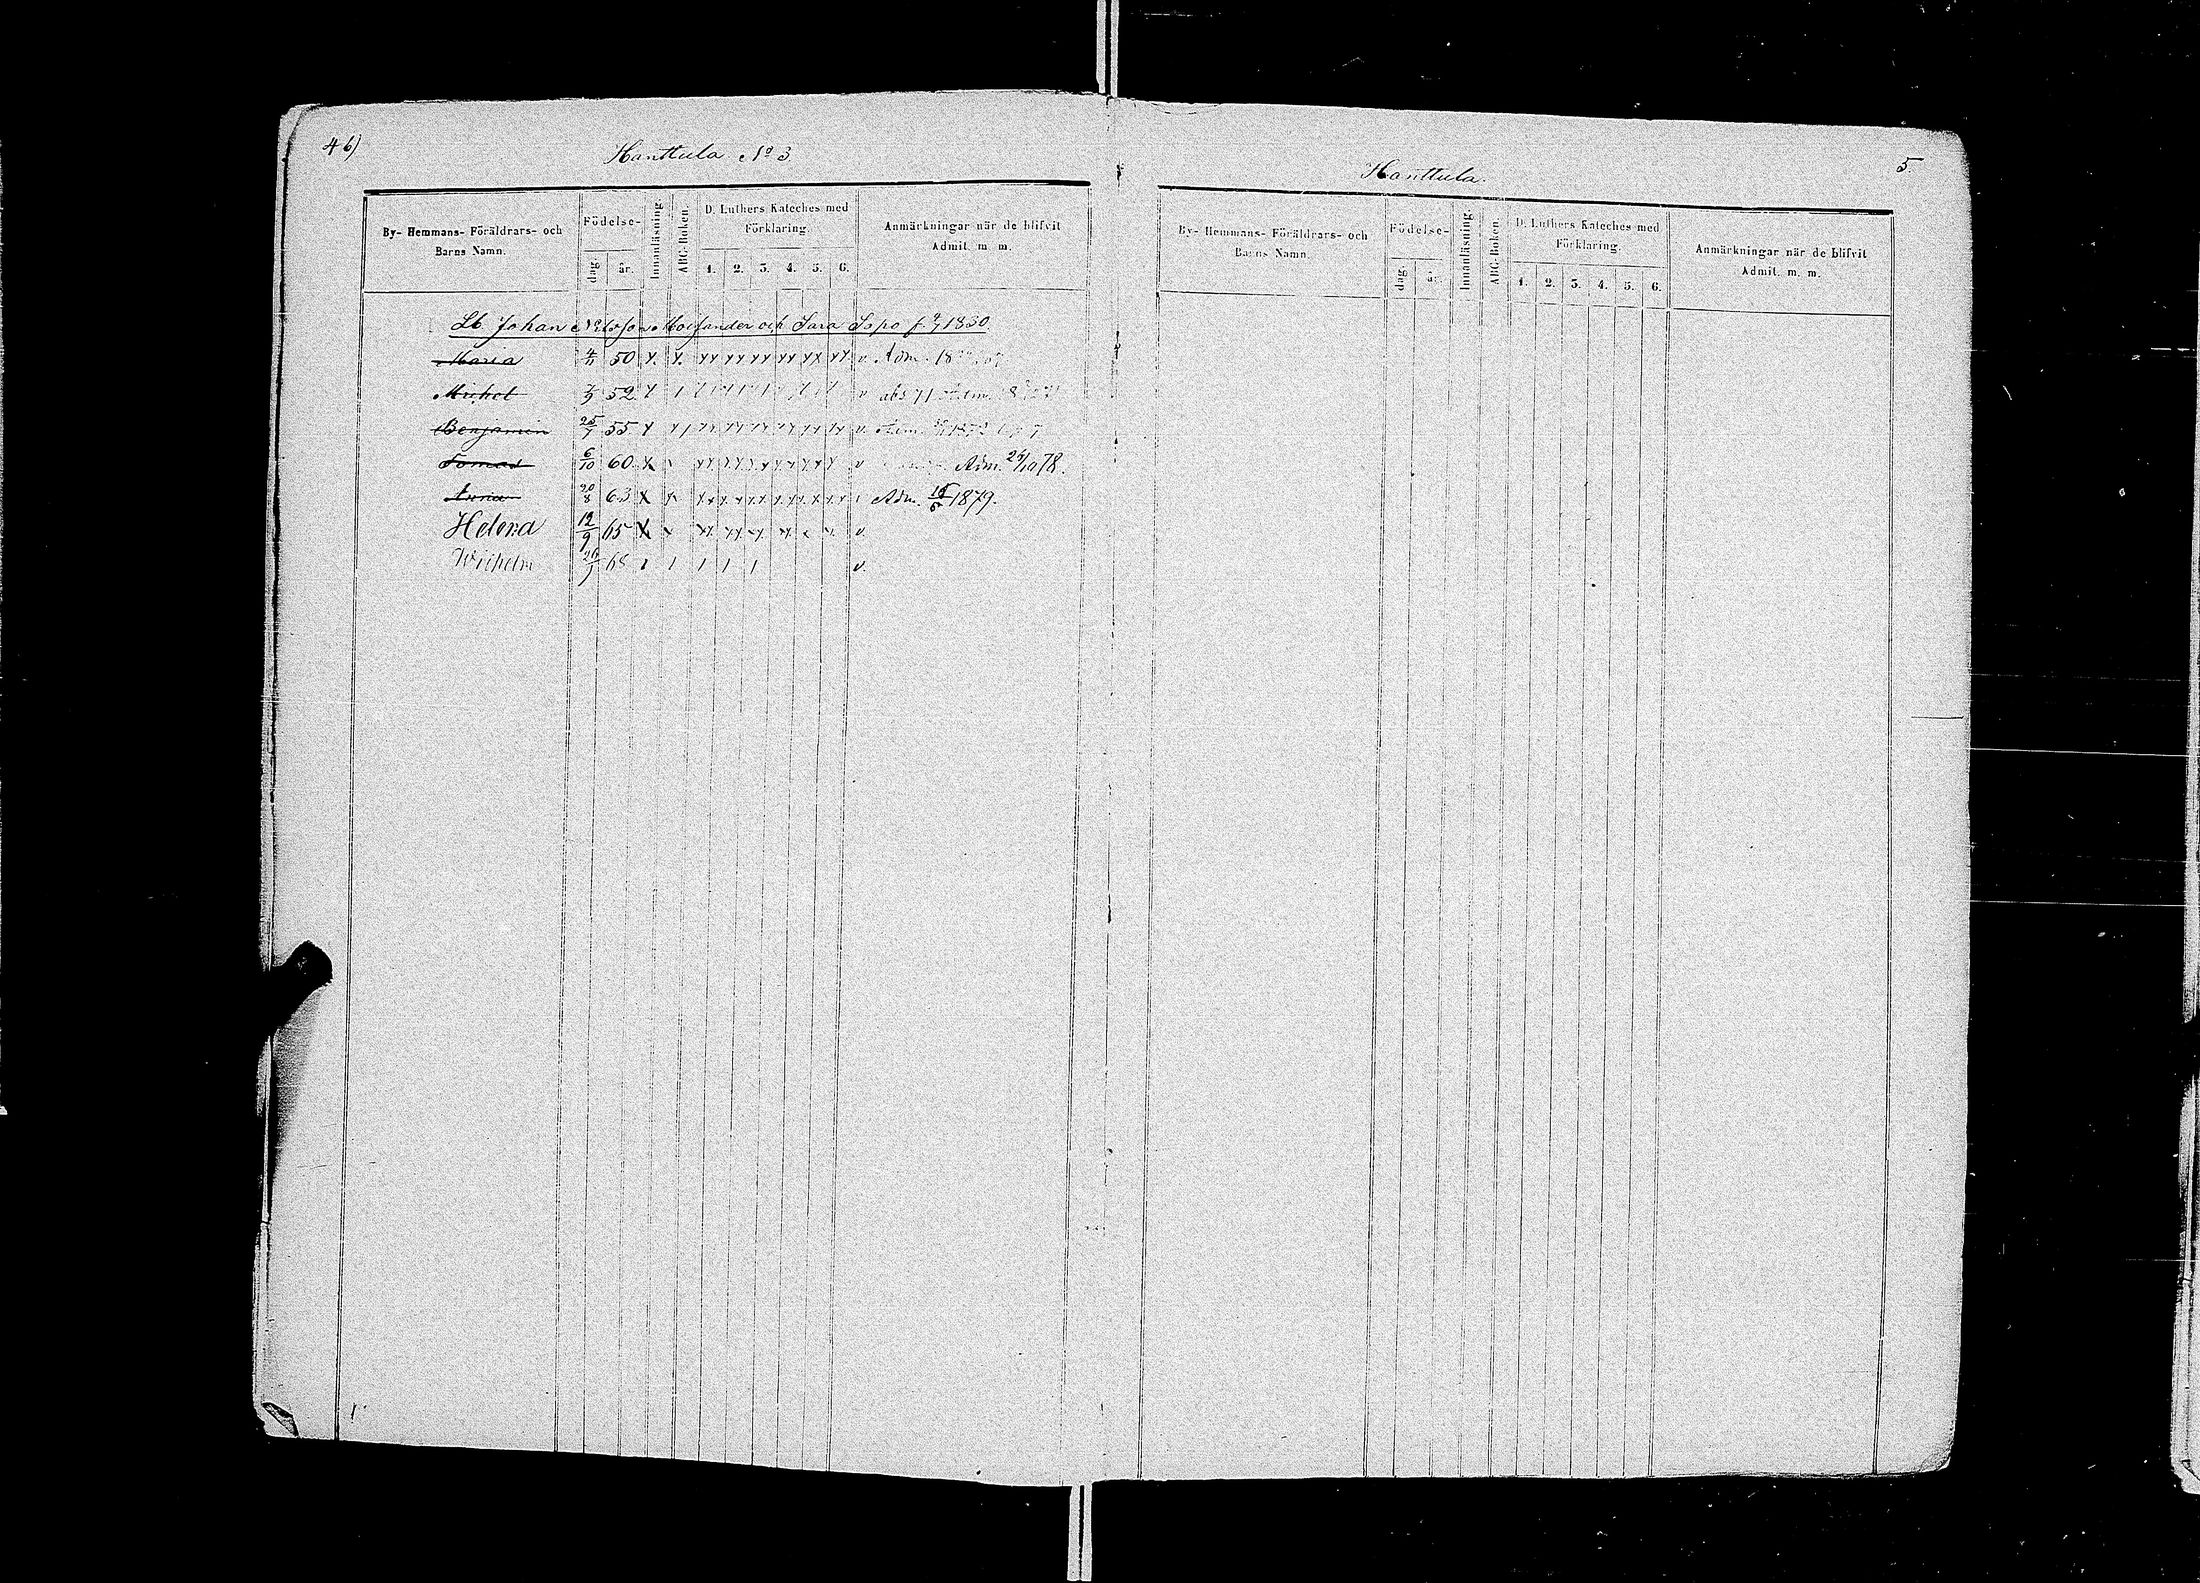 4 b)
Hanttula No 3
By- Hemmans- Föräldrars- och
Barns Namn.
Födelse-
dag
år.
Innanläsning.
ABC-Boken.
D. Luthers Kateches med
Förklaring.
1. 2. 3. 4. 5. 6.
Anmärkningar när de blifvit
Admit. m. m.
Lb Johan och Sara Sipo f. 1830
Maria 4/11 50 x. x. xx xx xx xx xx xx v. Adm.
Michel 52 v abs 71 Adm.
Benjamin 25/7 55 x v. Adm. 1872
Tomas 6/10 60 x v Adm. 25/10 78.
Anna 20/8 63 x x Adm. 15/6 1879.
Helena 12/9 65 x v.
Wilhelm 68 1 1 1 1 1 v.
Hanttula.
5.
By- Hemmans- Föräldrars- och
Barns Namn.
Födelse-
dag
år.
Innanläsning.
ABC-Boken.
D. Luthers Kateches med
Förklaring.
1. 2. 3. 4. 5. 6.
Anmärkningar när de blifvit
Admit. m. m.